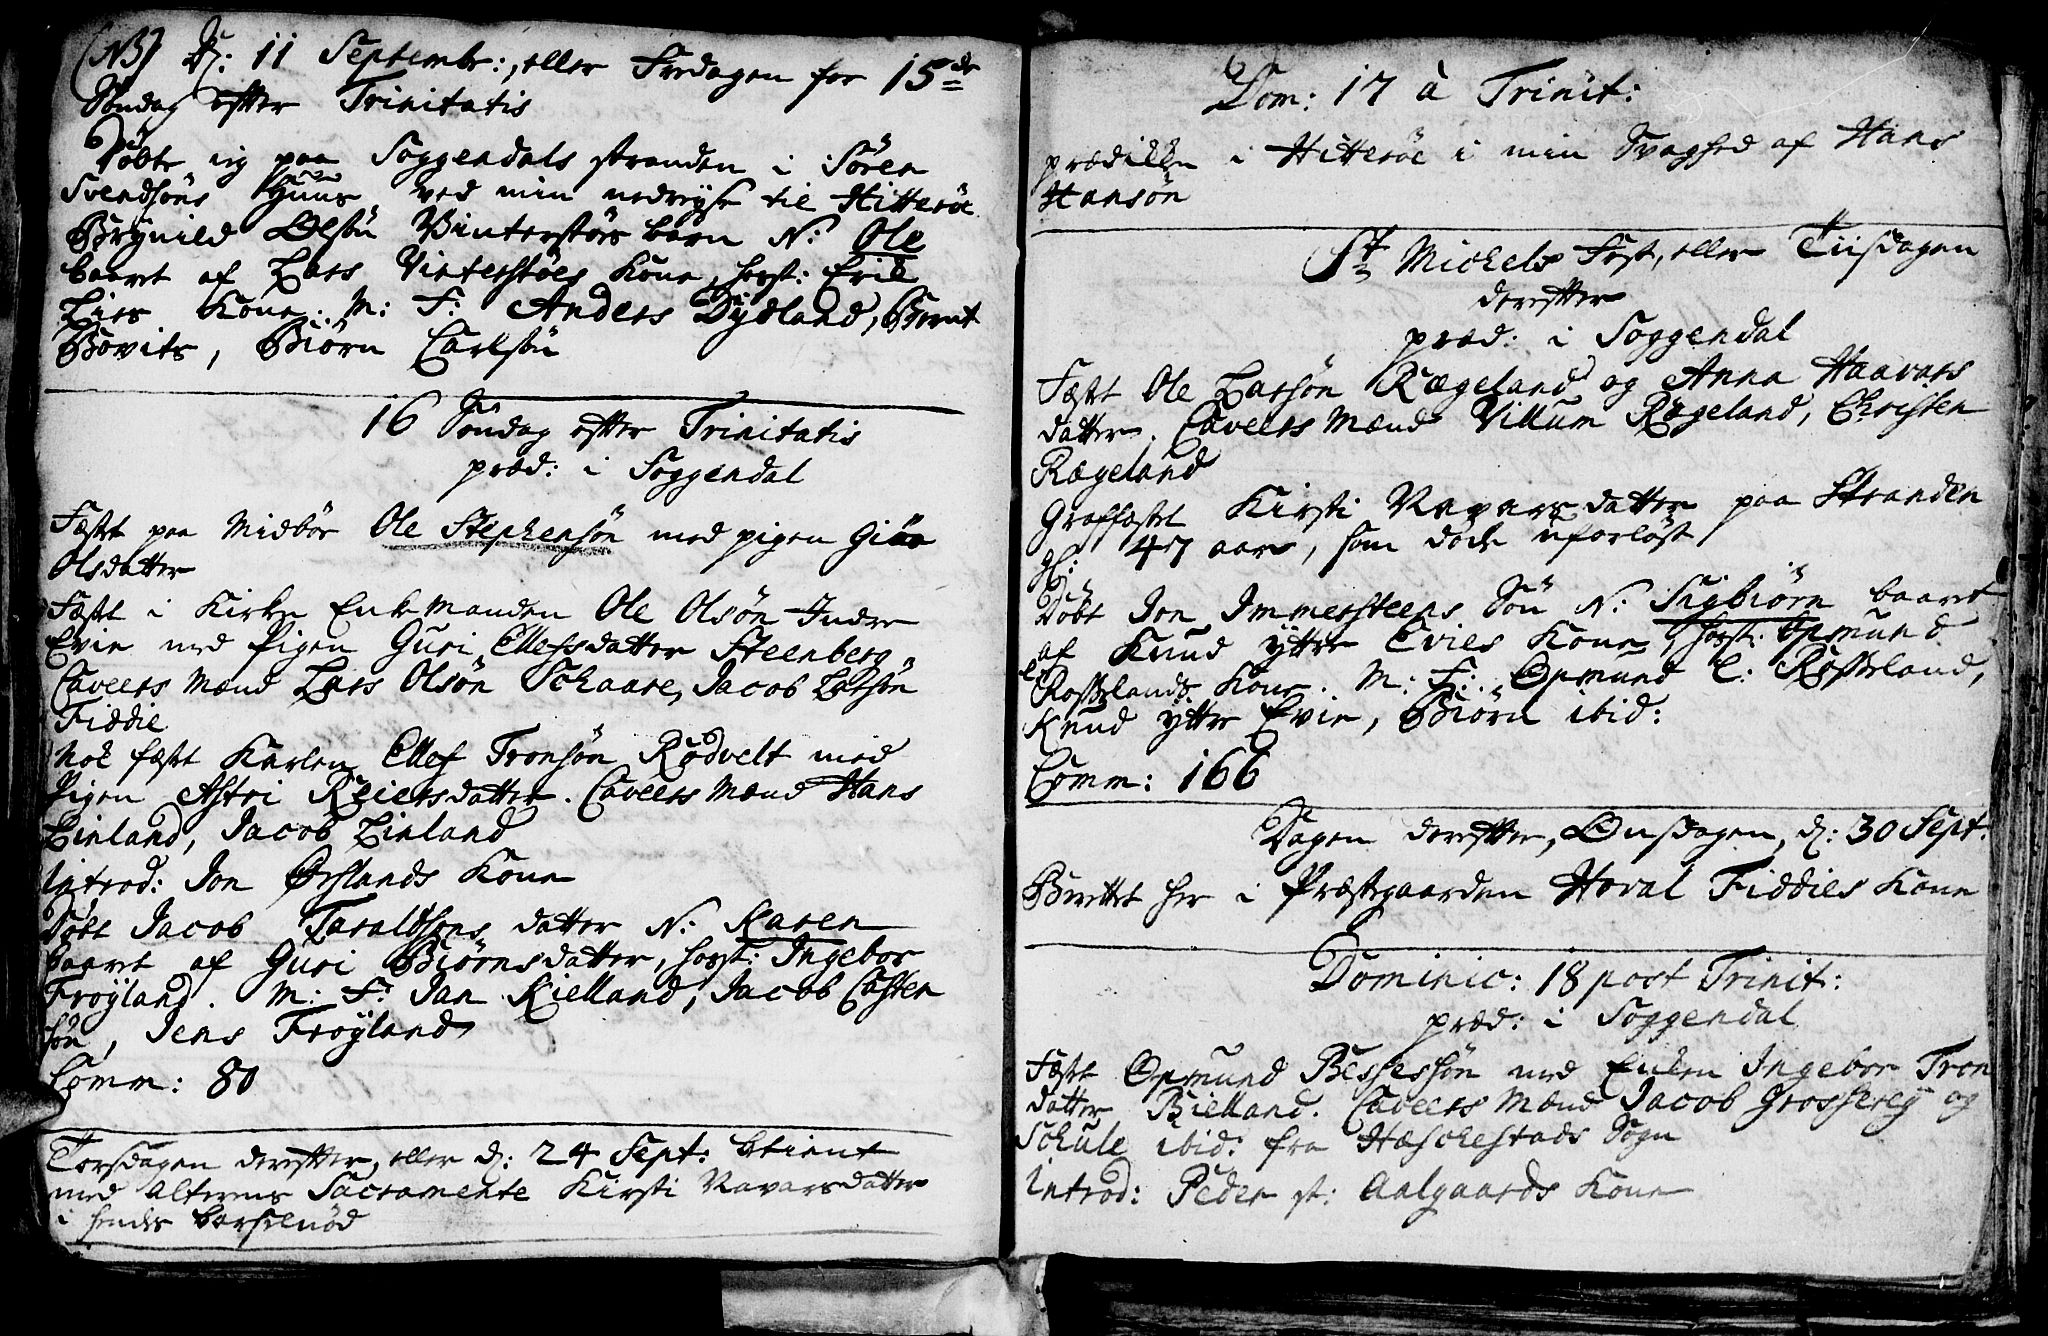 (NB) D: 11 Septembr:, eller Fredagen for 15de
Søndag efter Trinitatis
Döbte ieg paa Soggendals stranden i Sören
Svendsöns Huus ved min nedreyse til Hitteröe
Brynild Olsön Vinterstöes barn N: Ole
baaret af Lars Vinterstöes Kone, horst: Erik
Lies Kone. M: F: Anders Dydland, Bernt
Bovits, Biörn Carlsön
16 Söndag efter Trinitatis
præd: i Soggendal
Fæstet paa Midbör Ole Stephensön med pigen
Olsdatter
Fæstet i Kirken Enkemanden Ole Olsön Indre
Evie med Pigen Guri Ellefsdatter Steenberg.
Caveers Mænd Lars Olsön Schaare, Jacob Larsön
Fiddie
Nok fæstet Karlen Ellef Tronsön Rödvelt med
Pigen Astri Reiersdatter. Caveers Mænd Hans
Linland, Jacob Linland
Introd: Jon Örslands Kone
Döbt Jacob Taraldsöns datter N: Karen
baaret af Guri Biörnsdatter, horst: Ingebor
Fröyland. M: F: Jan Kielland, Jacob Casten
sön, Jens Fröyland
Comm: 80
Torsdagen derefter, eller d: 24 Sept: betient
med Alterens Sacramente Kirsti Ravarsdatter
i hendes barselnöd
Dom: 17 à Trinit:
prædiken i Hitteröe i min Svaghed af Hans
Hansön
St Michels Fest, eller Tiisdagen
derefter
præd: i Soggendal
Fæstet Ole Larsön Rægeland og Anna Haavars
datter. Caveers Mænd Villum Rægeland, Christen
Rægeland
Graffæstet Kirsti Ravarsdatter paa Stranden
gl: 47 aar, som döde uforlöst
Döbt Jon Immersteens Sön N: Sigbiörn baaret
af Knud yttre Evies Kone, horst: Opmund
Rosslands Kone. M: F: Opmund C: Rossland,
Knud yttre Evie, Biörn ibid:
Comm: 166
Dagen derefter, Onsdagen, d: 30 Sept:
Berettet her i Præstegaarden Horal Fiddies Kone
Dominic: 18 post Trinit:
præd: i Soggendal
Fæstet Opmund Bessessön med Enken Ingebor Tron
datter Bielland. Caveers Mænd Jacob Grosserey og
Schule ibid: fra Hæschestads Sogn
Introd: Peder st: Aalgaards Kone